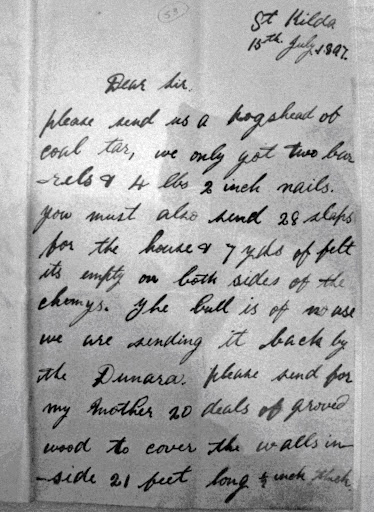 59
St Kilda
15th July 1897.
Dear Sir,
please send us a hogshead of
coal tar, we only got two bar
-rels & 4 lbs 2 inch nails.
you must also send 28 slaps
for the house & 7 yds of felt
its empty on both sides of the
chemys. The bull is of no use
we are sending it back by
the Dunara. please send for
my Mother 20 deals of groved
wood to cover the walls in
-side 21 feet long inch thick